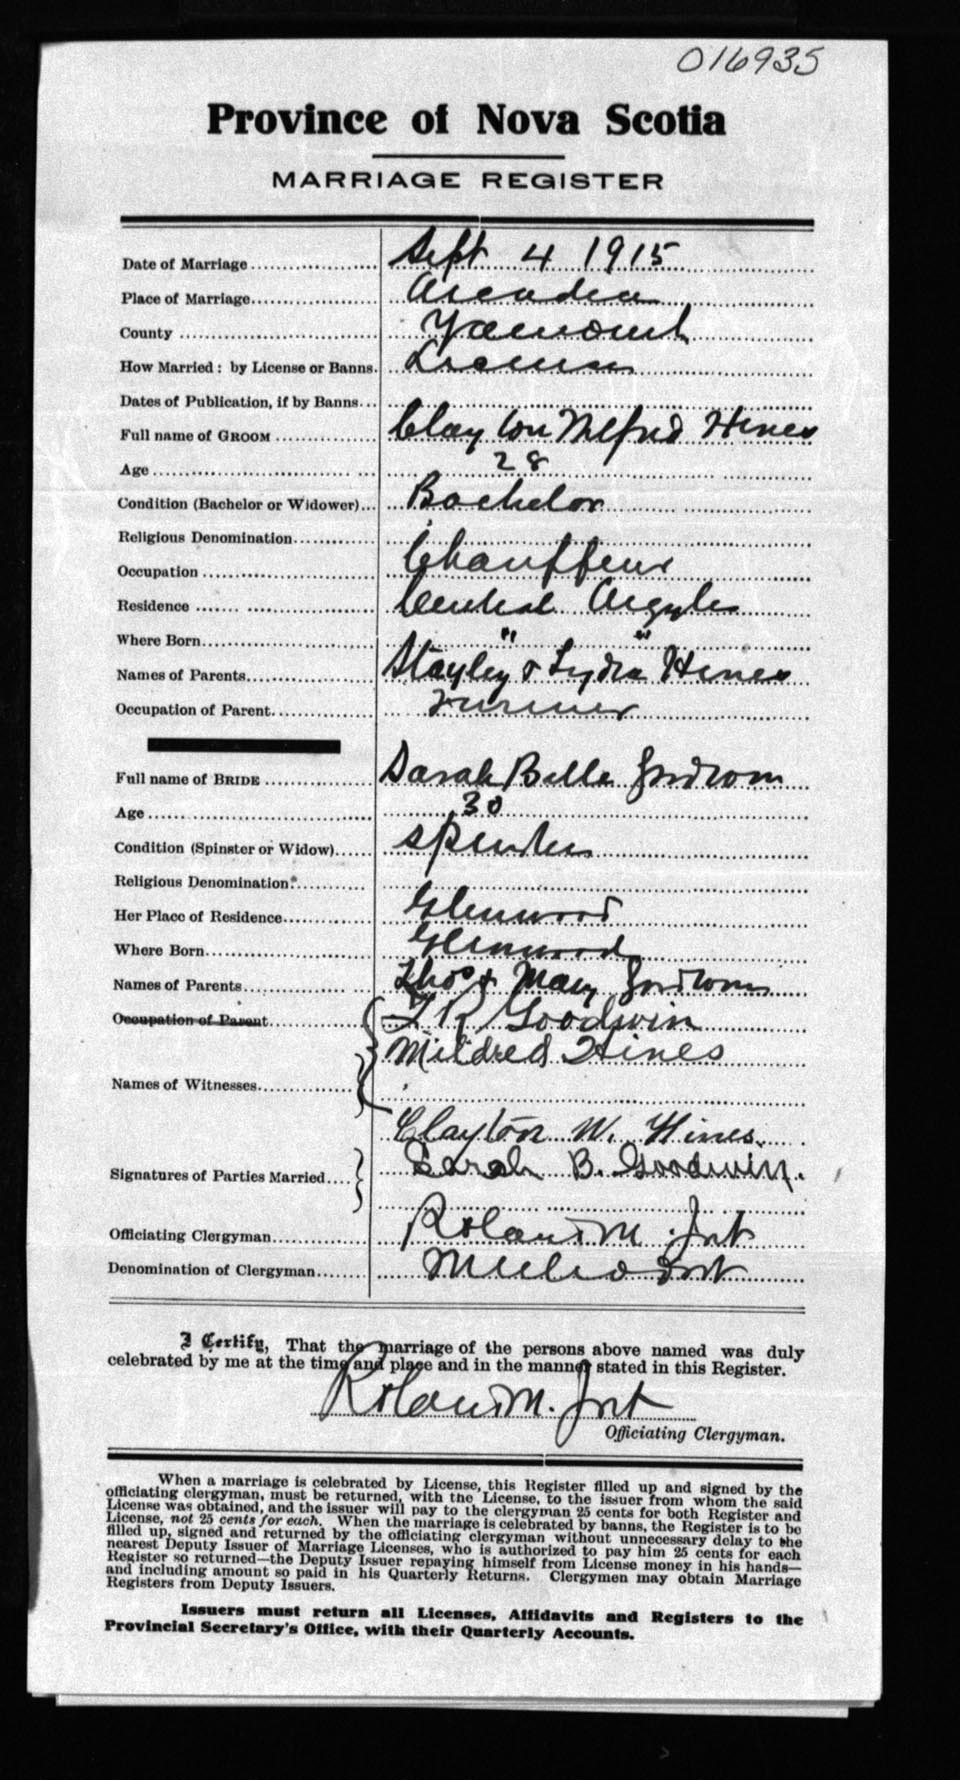 016935
Province of Nova Scotia
MARRIAGE REGISTER
Date of Marriage Sept 4 1915
Place of Marriage Arcadia
County Yarmouth
How Married: by License or Banns License
Dates of Publication, if by Banns
Full name of GROOM Clayton Hines
Age 28
Condition (Bachelor or Widower) Bachelor
Religious Denomination
Occupation Chauffeur
Residence Central Argyle
Where Born " "
Names of Parents Stayley & Lydia Hines
Occupation of Parent
Full name of BRIDE Sarah Belle Goodwin
Age 30
Condition (Spinster or Widow) Spinster
Religious Denomination
Her Place of Residence Glenwood
Where Born Glenwood
Names of Parents Thos & Mary Goodwin
Occupation of Parent R Goodwin
Mildred Hines
Names of Witnesses
Clayton W. Hines
Sarah B. Goodwin.
Signatures of Parties Married
Officiating Clergyman Roland M.
Denomination of Clergyman Methodist
I Certify, That the marriage of the persons above named was duly
celebrated by me at the time and place and in the manner stated in this Register.
Roland M.
Officiating Clergyman.
When a marriage is celebrated by License, this Register filled up and signed by the
officiating clergyman, must be returned, with the License, to the issuer from whom the said
License was obtained, and the issuer will pay to the clergyman 25 cents for both Register and
License, not 25 cents for each. When the marriage is celebrated by banns, the Register is to be
filled up, signed and returned by the officiating clergyman without unnecessary delay to the
nearest Deputy Issuer of Marriage Licenses, who is authorized to pay him 25 cents for each
Register so returned—the Deputy Issuer repaying himself from License money in his hands—
and including amount so paid in his Quarterly Returns. Clergymen may obtain Marriage
Registers from Deputy Issuers.
Issuers must return all Licenses, Affidavits and Registers to the
Provincial Secretary's Office, with their Quarterly Accounts.